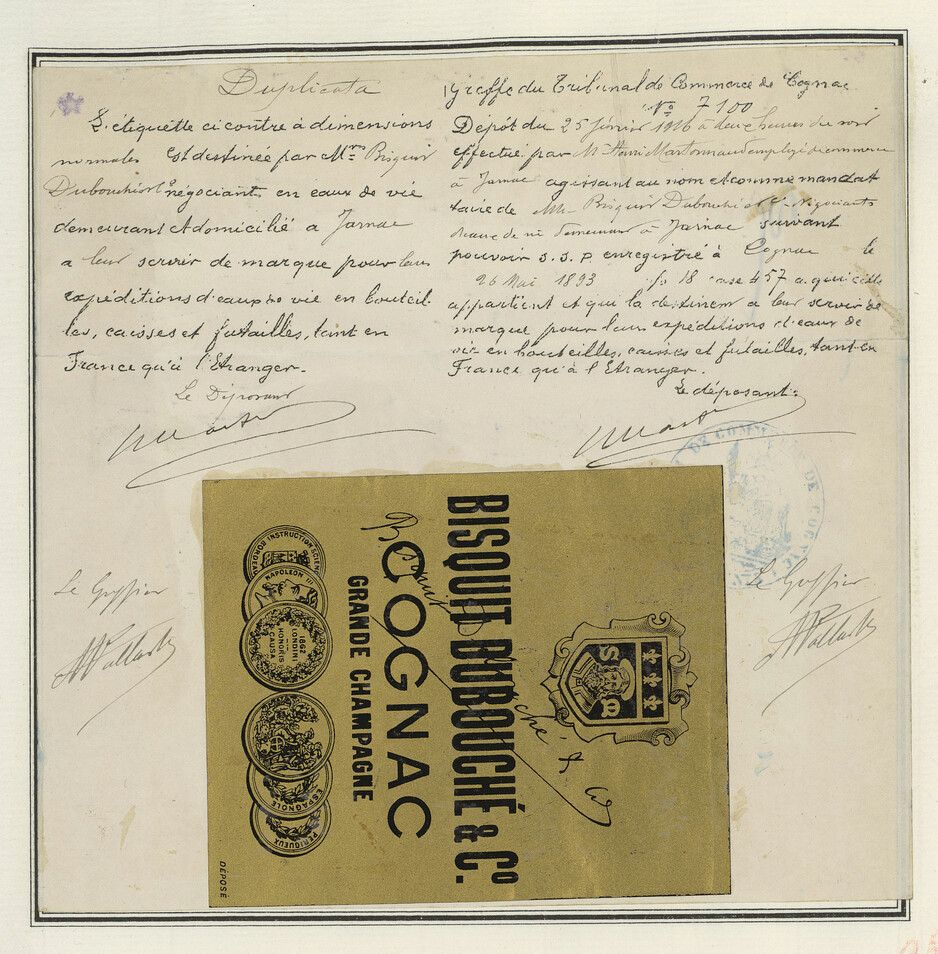 Duplicata
L'étiquette ci contre à dimensions
normales est destinée par M.rs Bisquit
Dubouché & Co négociants en eaux de vie
demeurant et domicilié a Jarnac
a leur servir de marque pour leurs
expéditions d'eaux de vie en bouteil-
les, caisses et futailles, tant en
France qu'à l'Etranger.
Le Déposant
Greffe du Tribunal de Commerce de Cognac
No 7100
Dépôt du 25 janvier 1916 à deux heures du soir
effectué par Mr Henri employé de commerce
à Jarnac agissant au nom et comme mandat
taire de MM. Bisquit Dubouché & Co négociants
eaux de vie demeurant à Jarnac suivant
pouvoir s.s.p. enregistré à Cognac le
26 Mai 1893 fo 18 case 457 a qui celle
appartient et qui la destinent a leur servir de
marque pour leurs expéditions d'eaux de
vie en bouteilles, caisses et futailles, tant en
France qu'à l'Etranger.
Le déposant:
DE COMMERCE DE COGNAC
Le Greffier
Le Greffier
BISQUIT DUBOUCHÉ & Co.
Bisquit Dubouché & Co
COGNAC
GRANDE CHAMPAGNE
INSTRUCTION
NAPOLEON III
1862
LONDINI
HONORIS
CAUSA
ESPAGNOLE
PERIGUEUX
DÉPOSÉ